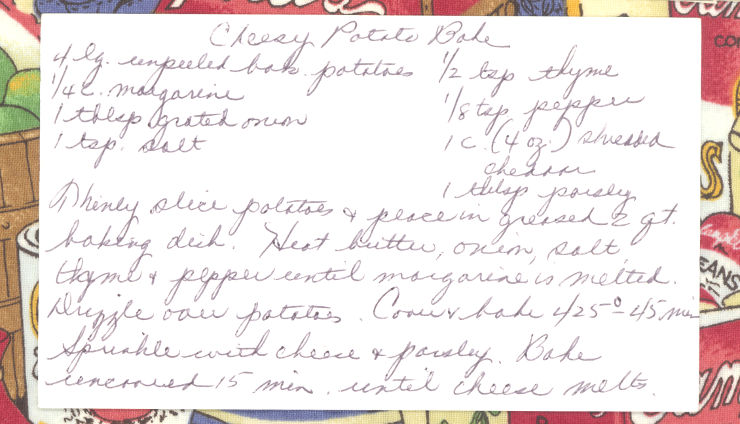 Cheesy Potato Bake
4 lg. unpeeled bak. potatoes
1/4 c. margarine
1 tblsp grated onion
1 tsp. salt
1/2 tsp thyme
1/8 tsp pepper
1 c. (4 oz.) shredded
cheddar
1 tblsp parsley
Thinly slice potatoes & place in greased 2 qt.
baking dish. Heat butter, onion, salt,
thyme & pepper until margarine is melted.
Drizzle over potatoes. Cover & bake 425° 45 min
Sprinkle with cheese & parsley. Bake
uncovered 15 min. until cheese melts.